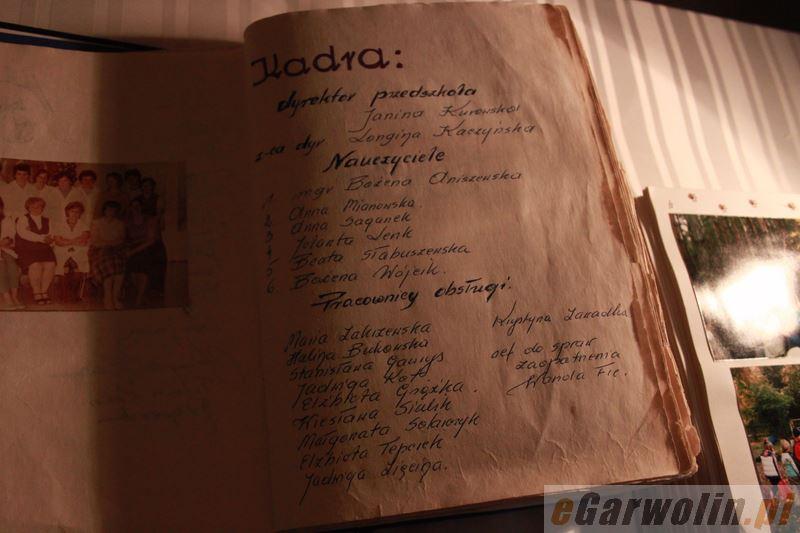 Kadra:
dyrektor przedszkola
Janina Kurowska
z-ca dyr Longina Kaczyńska
Nauczyciele
1. mgr Bożena Aniszewska
2. Anna Mianowska.
3. Anna Saganek
4 Jolanta Lenk
5 Beata Słabuszewska
6. Bożena Wójcik.
Pracownicy obsługi.
Maria Zakrzewska
Halina Bukowska
Stanisława Gawrys
Jadwiga Kot
Elżbieta Grązka.
Wiesława Siulik
Małgorzata Sokarczyk
Elżbieta Teporek
Jadwiga
Krystyna Zawadka
ref do spraw
zaopatrzenia
Wanda Fic.
eGarwolin.pl